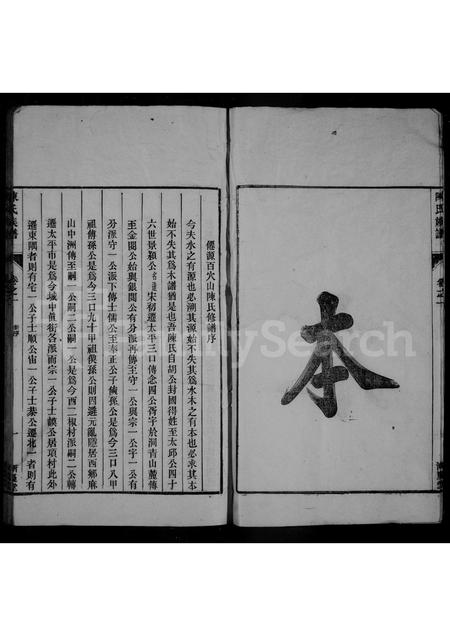 本
僊源百穴山陳氏修譜序
今夫水之有源也必溯其源始不失其為水木之有本也必求其本
始不失其為木譜猶是也吾陳氏自胡公封國得姓至太邱公四十
六世景穎公宋初遷太平三口傳念四公胥宇於洞青山麓傳
至金閶公始與銀閶公有分派再傳至守一公與宗一公宇一公有
分派守一公派下傳士儒公至奉正公子侯孫公是為今三口八甲
祖傳孫公是為今三口九十甲祖侯孫公則因避元亂隱居西鄉麻
山中洲傳至嗣一公嗣二公嗣一公是為今西二椒村派嗣二公轉
遷太平市是為今城中直街各派而宗一公子士饒公居項村此外
遷東隅者則有宅一公子士順公宙一公子士恭公遷北一者則有
陳氏族譜
卷之一
序
一
FamilySearch